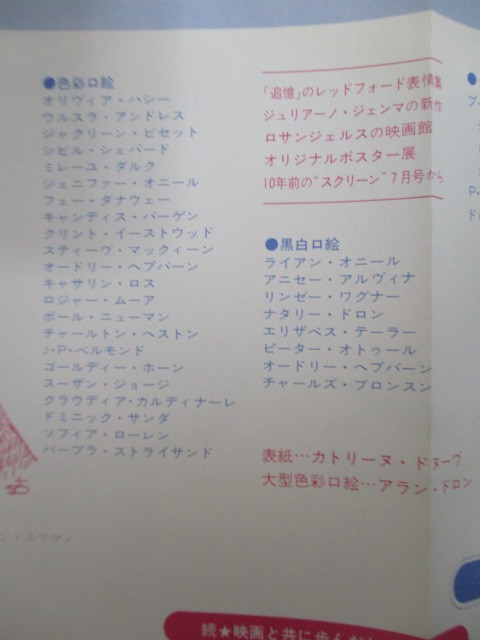 ●色彩口絵
オリヴィア・ハシー
ウルスラ・アンドレス
ジャクリーン・ビセット
シビル・シェパード
ミレーユ・ダルク
ジェニファー・オニール
フェー・ダナウェー
キャンディス・バーゲン
クリント・イーストウッド
スティーヴ・マックィーン
オードリー・ヘプバーン
キャサリン・ロス
ロジャー・ムーア
ポール・ニューマン
チャールトン・ヘストン
J・P・ベルモンド
ゴールディー・ホーン
スーザン・ジョージ
クラウディア・カルディナーレ
ドミニック・サンダ
ソフィア・ローレン
バーブラ・ストライサンド
「追憶」のレッドフォード表情集
ジュリアーノ・ジェンマの新作
ロサンジェルスの映画館
オリジナルポスター展
10年前の“スクリーン”7月号から
●黒白口絵
ライアン・オニール
アニセー・アルヴィナ
リンゼー・ワグナー
ナタリー・ドロン
エリザベス・テーラー
ピーター・オトゥール
オードリー・ヘプバーン
チャールズ・ブロンスン
表紙…カトリーヌ・ドヌーヴ
大型色彩口絵…アラン・ドロン
続★映画と共に歩んだ